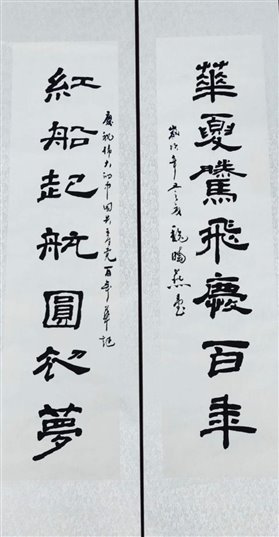 華夏騰飛慶百年
歲次辛丑之
慶祝偉大的中國共產黨百年華誕
紅船起航圓初夢